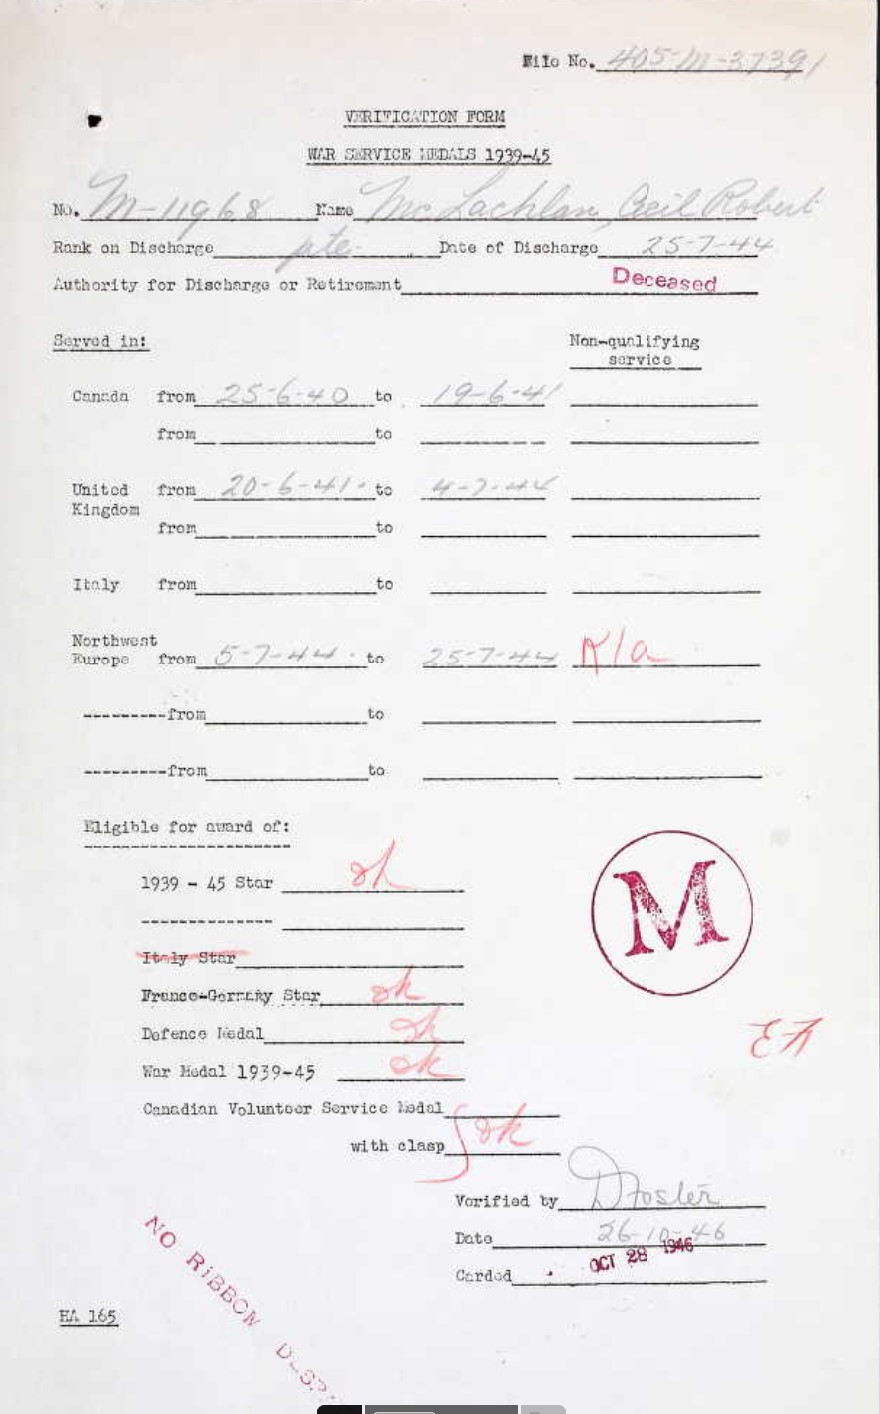 File No. 405-M-37391
VERIFICATION FORM
WAR SERVICE MEDALS 1939-45
No. M-11968 Name McLachlan, Cecil Robert
Rank on Discharge pte. Date of Discharge 25-7-44
Authority for Discharge or Retirement Deceased
Served in: Non-qualifying
service
Canada from 25-6-40 to 19-6-41
from to
United from 20-6-41 to 4-7-44
Kingdom
from to
Italy from to
Northwest
Europe from 5-7-44 to 25-7-44 K/a
---------from to
---------from to
Eligible for award of:
----------------------
1939 - 45 Star ok
--------------
Italy Star
M
France-Germany Star ok
Defence Medal ok
EF
War Medal 1939-45 ok
Canadian Volunteer Service Medal
with clasp ok
Verified by D Foster
Date 26-10-46
Carded OCT 28 1946
NO RIBBON
HA 165